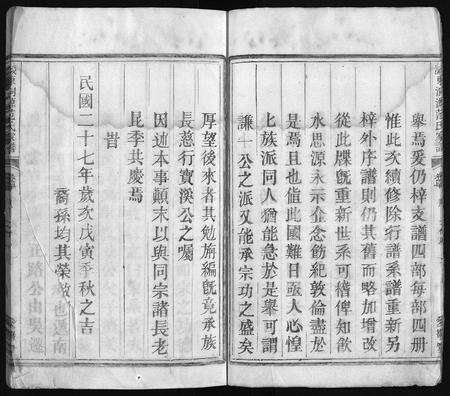 舉焉爰仍梓支譜四部每部四冊
惟此次續修除行譜系譜重新另
梓外序譜則仍其舊而略加增改
從此牒既重新世系可稽俾知飲
水思源永示念念飭紀敦倫盡於
是焉且也值此國難日亟人心惶
上族派同人猶能急於是舉可謂
謙一公之派又能承宗功之盛矣
厚望後來者其勉旃編既竟承族
長慈行寶溪公之囑
因述本事顛末以與同宗諸長老
昆季其慶焉
旹
民國二十七年歲次戊寅季秋之吉
裔孫均其榮敬